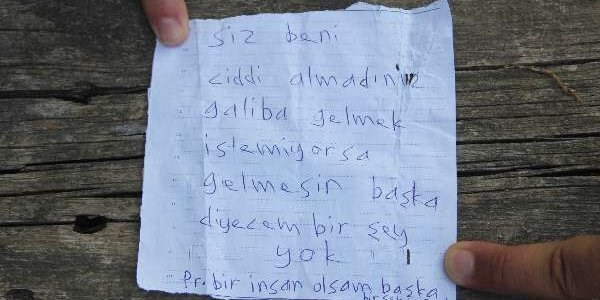 siz beni
ciddi almadınız
galiba gelmek
istemiyorsa
gelmesin başka
diyecem bir şey
yok
bir insan olsam başka